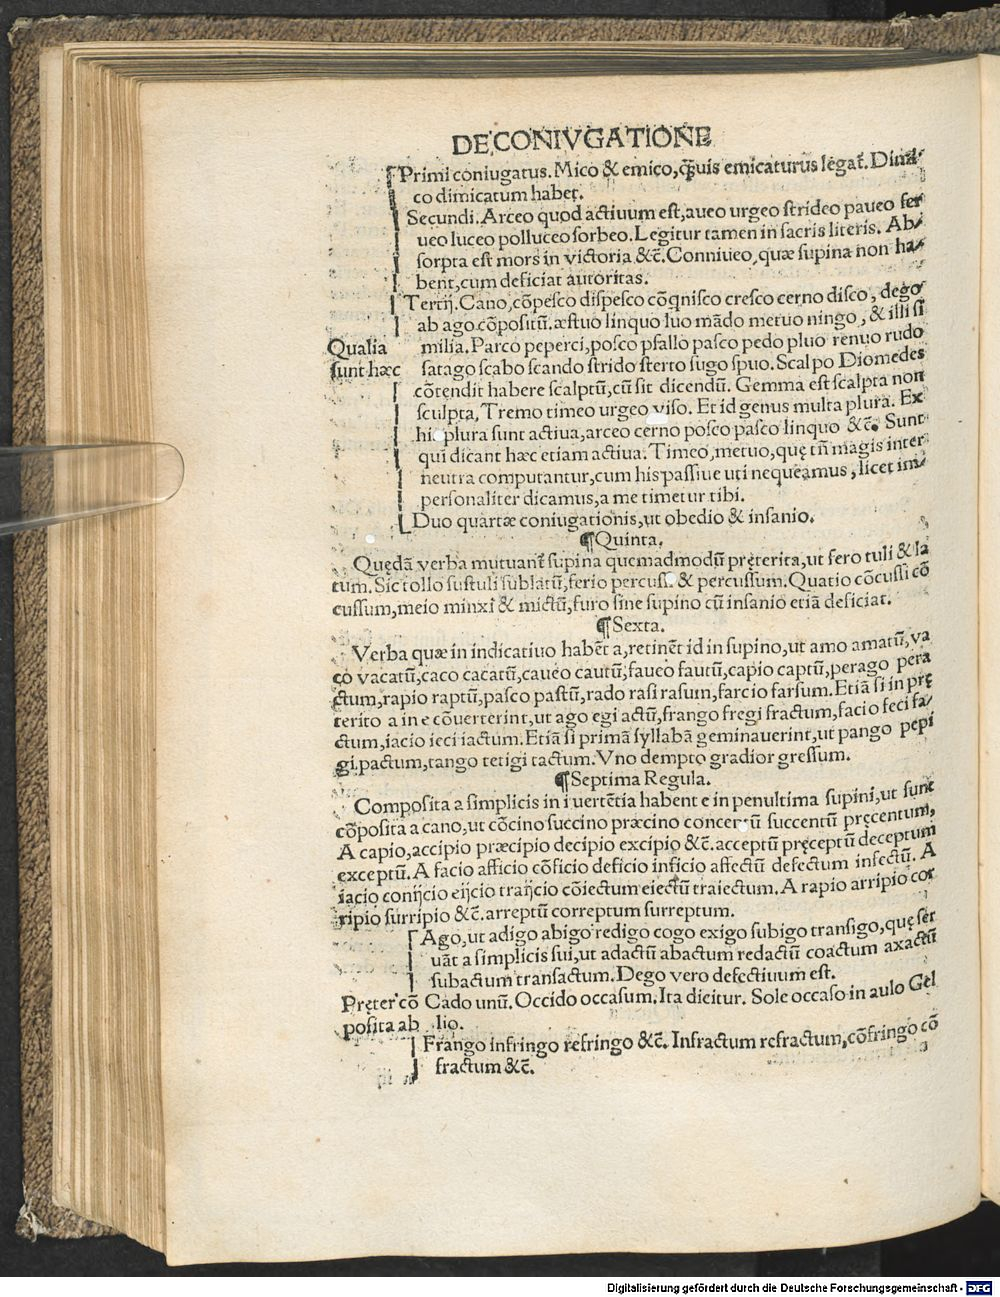 DE CONIVGATIONE
Primi coniugatus. Mico & emico, q̃uis emicaturus legat̃. Dimi
co dimicatum habet.
Secundi. Arceo quod actiuum est, aueo urgeo strideo paueo fer
ueo luceo polluceo sorbeo. Legitur tamen in sacris literis. Ab/
sorpta est mors in victoria &c̃. Conniueo, quæ supina non ha/
bent, cum deficiat autoritas.
Tertij. Cano, cõpesco dispesco cõqnisco cresco cerno disco, dego
ab ago cõpositũ. æstuo linquo luo mãdo metuo ningo, & illi si
Qualia
sunt hæc
milia. Parco peperci, posco psallo pasco pedo pluo renuo rudo
satago scabo scando strido sterto sugo spuo. Scalpo Diomedes
cõtendit habere scalptũ, cũ sit dicendũ. Gemma est scalpta non
sculpta, Tremo timeo urgeo viso. Et id genus multa plura. Ex
his plura sunt actiua, arceo cerno posco pasco linquo &c̃. Sunt
qui dicant hæc etiam actiua. Timeo, metuo, quę tñ magis inter
neutra computantur, cum his passiue uti nequeamus, licet im/
personaliter dicamus, a me timetur tibi.
Duo quartæ coniugationis, ut obedio & insanio.
¶Quinta.
Quędã verba mutuant̃ supina quemadmodũ pręterita, ut fero tuli & la
tum. Sic tollo sustuli sublatũ, ferio percussi & percussum. Quatio cõcussi cõ
cussum, meio minxi & mictũ, furo sine supino cũ insanio etiã deficiat.
¶Sexta.
Verba quæ in indicatiuo habẽt a, retinẽt id in supino, ut amo amatũ, va
co vacatũ, caco cacatũ, caueo cautũ, faueo fautũ, capio captũ, perago pera
ctum, rapio raptũ, pasco pastũ, rado rasi rasum, farcio farsum. Etiã si in prę
terito a in e cõuerterint, ut ago egi actũ, frango fregi fractum, facio feci fa/
ctum, iacio ieci iactum. Etiã si primã syllabã geminauerint, ut pango pepi
gi pactum, tango tetigi tactum. Vno dempto gradior gressum.
¶Septima Regula.
Composita a simplicis in i uertẽtia habent e in penultima supini, ut sunt
cõposita a cano, ut cõcino succino præcino concentũ succentũ pręcentum,
A capio, accipio præcipio decipio excipio &c̃. acceptũ pręceptũ deceptum
exceptũ. A facio afficio cõficio deficio inficio affectũ defectum infectũ. A
iacio conijcio eijcio traijcio cõiectum eiectũ traiectum. A rapio arripio cor
ripio surripio &c̃. arreptũ correptum surreptum.
Ago, ut adigo abigo redigo cogo exigo subigo transigo, quę ser
uãt a simplicis sui, ut adactũ abactum redactũ coactum axactũ
subactum transactum. Dego vero defectiuum est.
Pręter cõ
posita ab
Cado unũ. Occido occasum. Ita dicitur. Sole occaso in aulo Gel
lio.
Frango infringo refringo &c̃. Infractum refractum, cõfringo cõ
fractum &c̃.
Digitalisierung gefördert durch die Deutsche Forschungsgemeinschaft - DFG